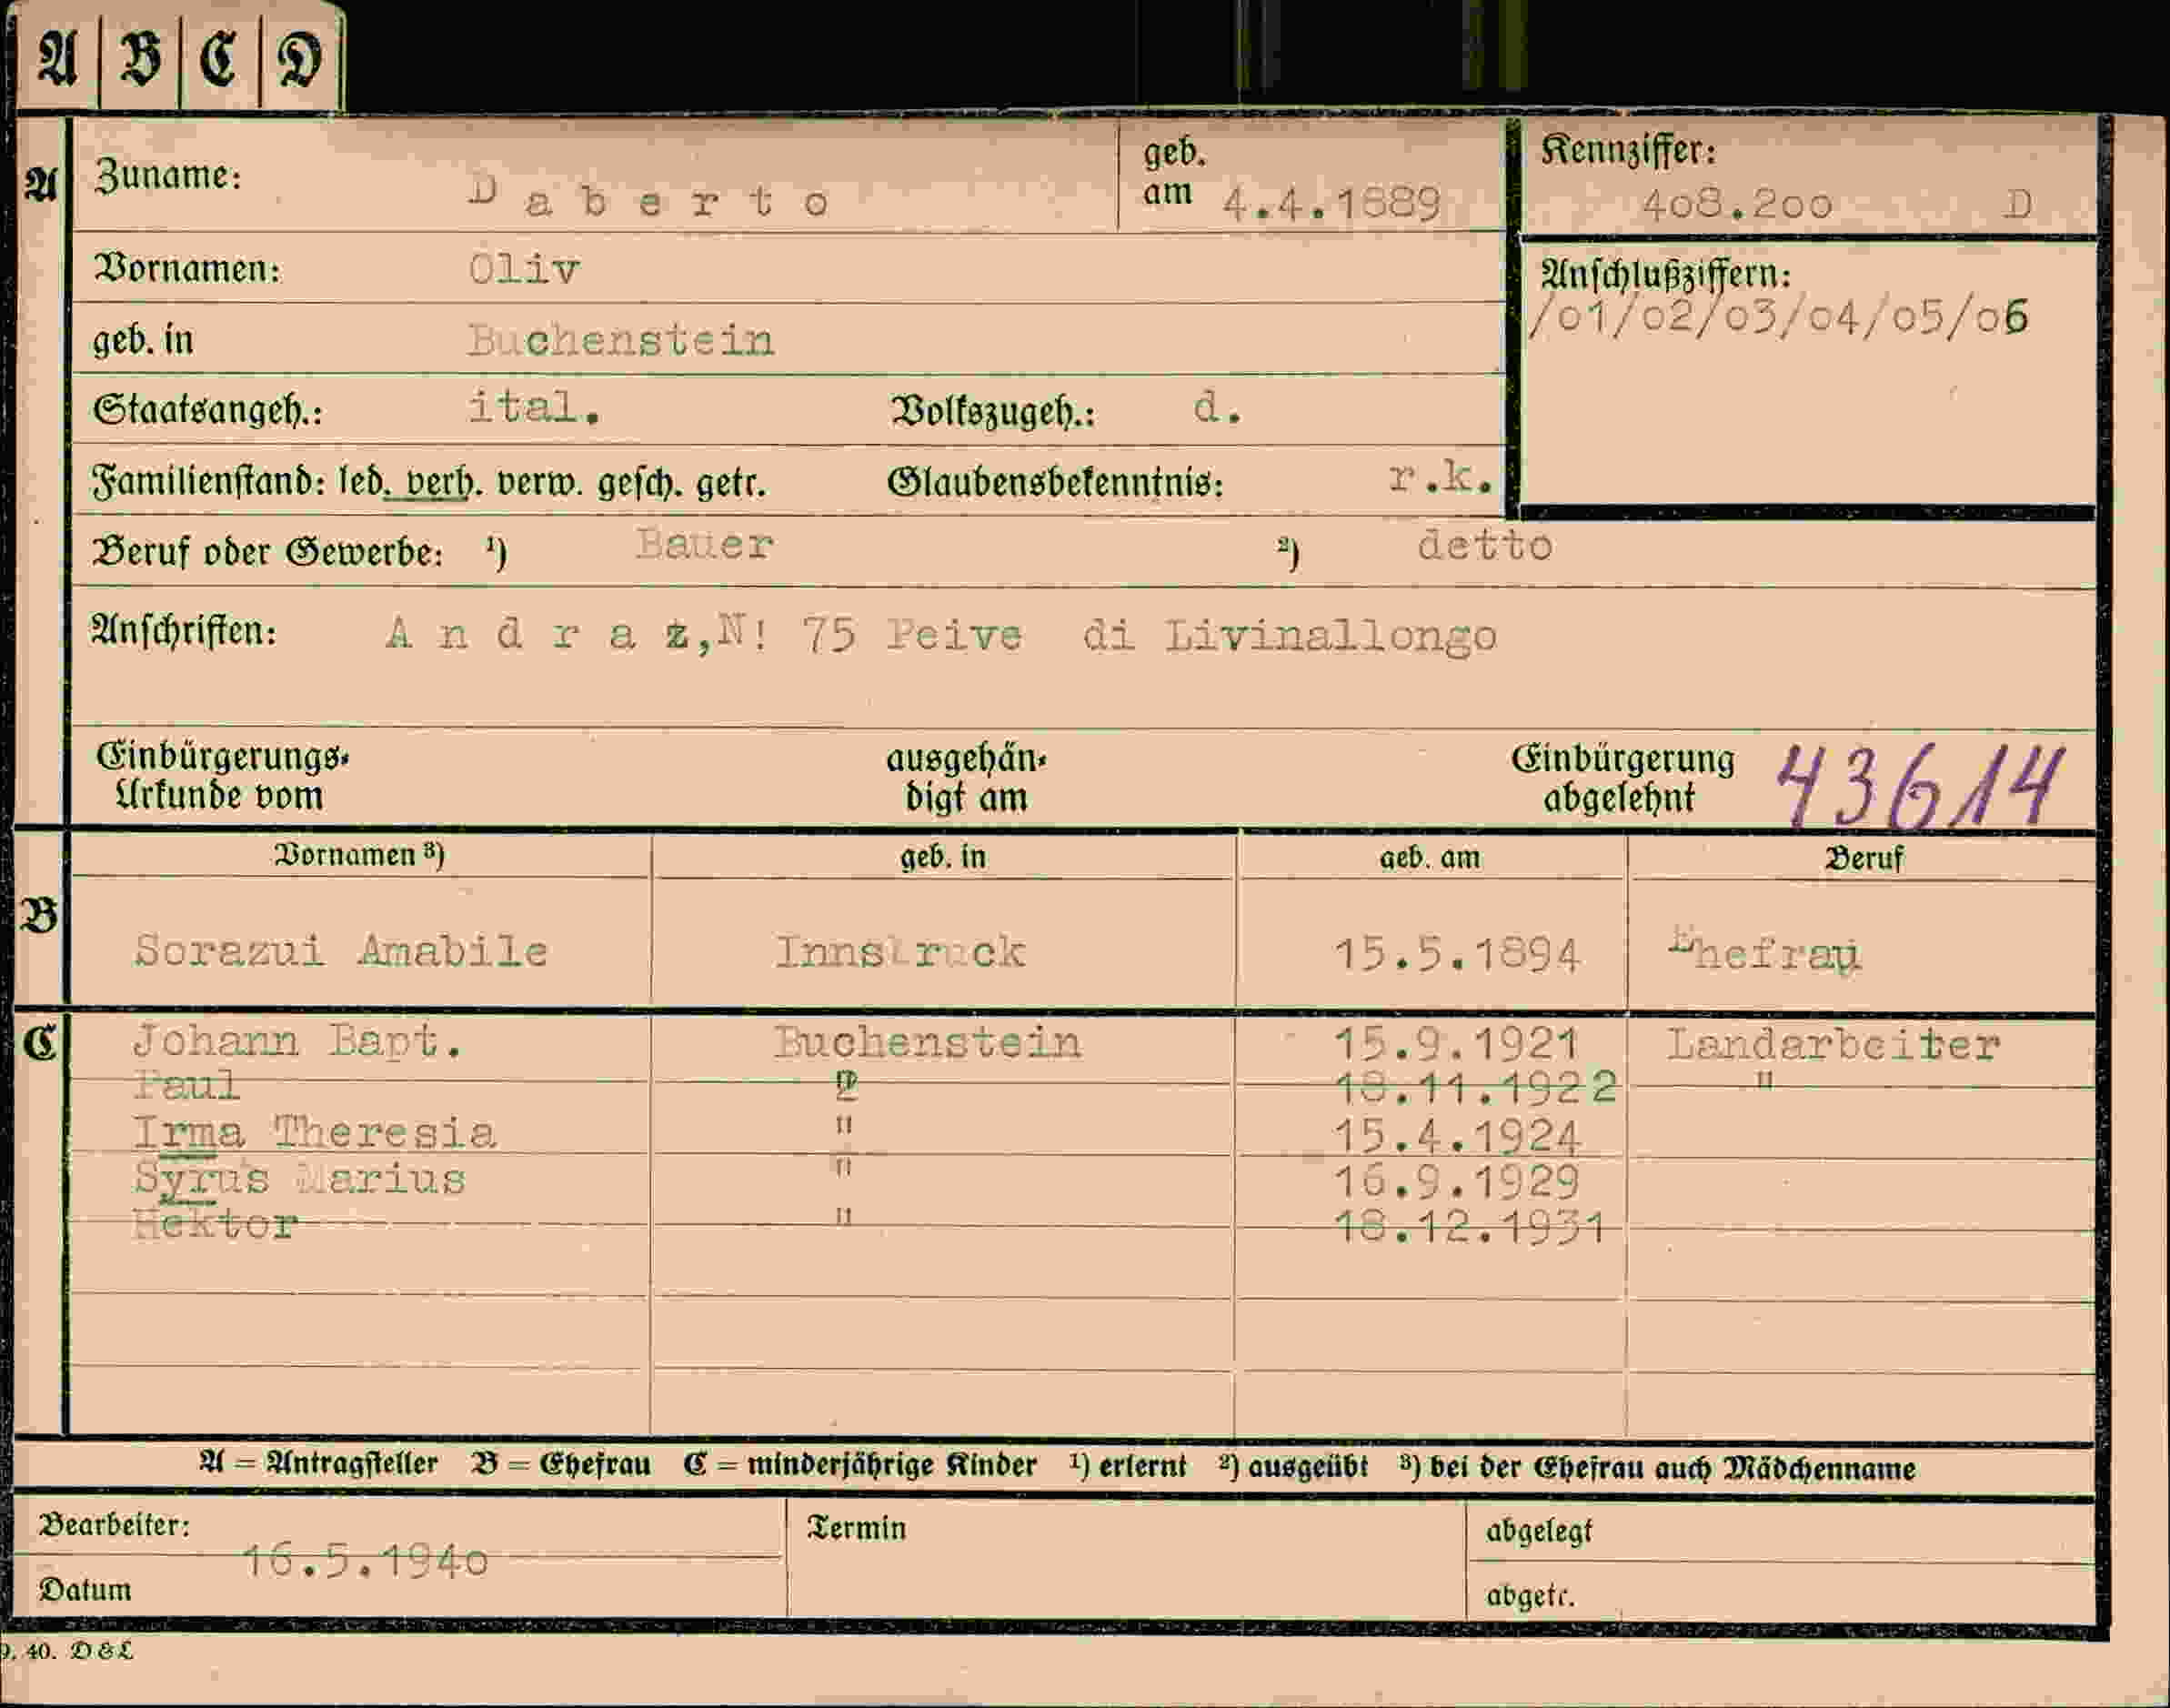 A B C D
A Zuname: Daberto geb. am 4.4.1889 Kennziffer: 408.200 D
Vornamen: Oliv Anschlußziffern:
/01/02/03/04/05/06
geb. in Buchenstein
Staatsangeh.: ital. Volkszugeh.: d.
Familienstand: led. verh. verw. gesch. getr. Glaubensbekenntnis: r.k.
Beruf oder Gewerbe: ¹) Bauer ²) detto
Anschriften: Andraz,N! 75 Peive di Livinallongo
Einbürgerungs- ausgehän- Einbürgerung 43614
Urkunde vom digt am abgelehnt
Vornamen ³) geb. in geb. am Beruf
B Sorazui Amabile Innsbruck 15.5.1894 Ehefrau
C Johann Bapt. Buchenstein 15.9.1921 Landarbeiter
Paul 18.11.1922 "
Irma Theresia " 15.4.1924
Syrus Marius " 16.9.1929
Hektor " 18.12.1931
A = Antragsteller B = Ehefrau C = minderjährige Kinder ¹) erlernt ²) ausgeübt ³) bei der Ehefrau auch Mädchenname
Bearbeiter: Termin abgelegt
16.5.1940
Datum abgetr.
9. 40. D & L